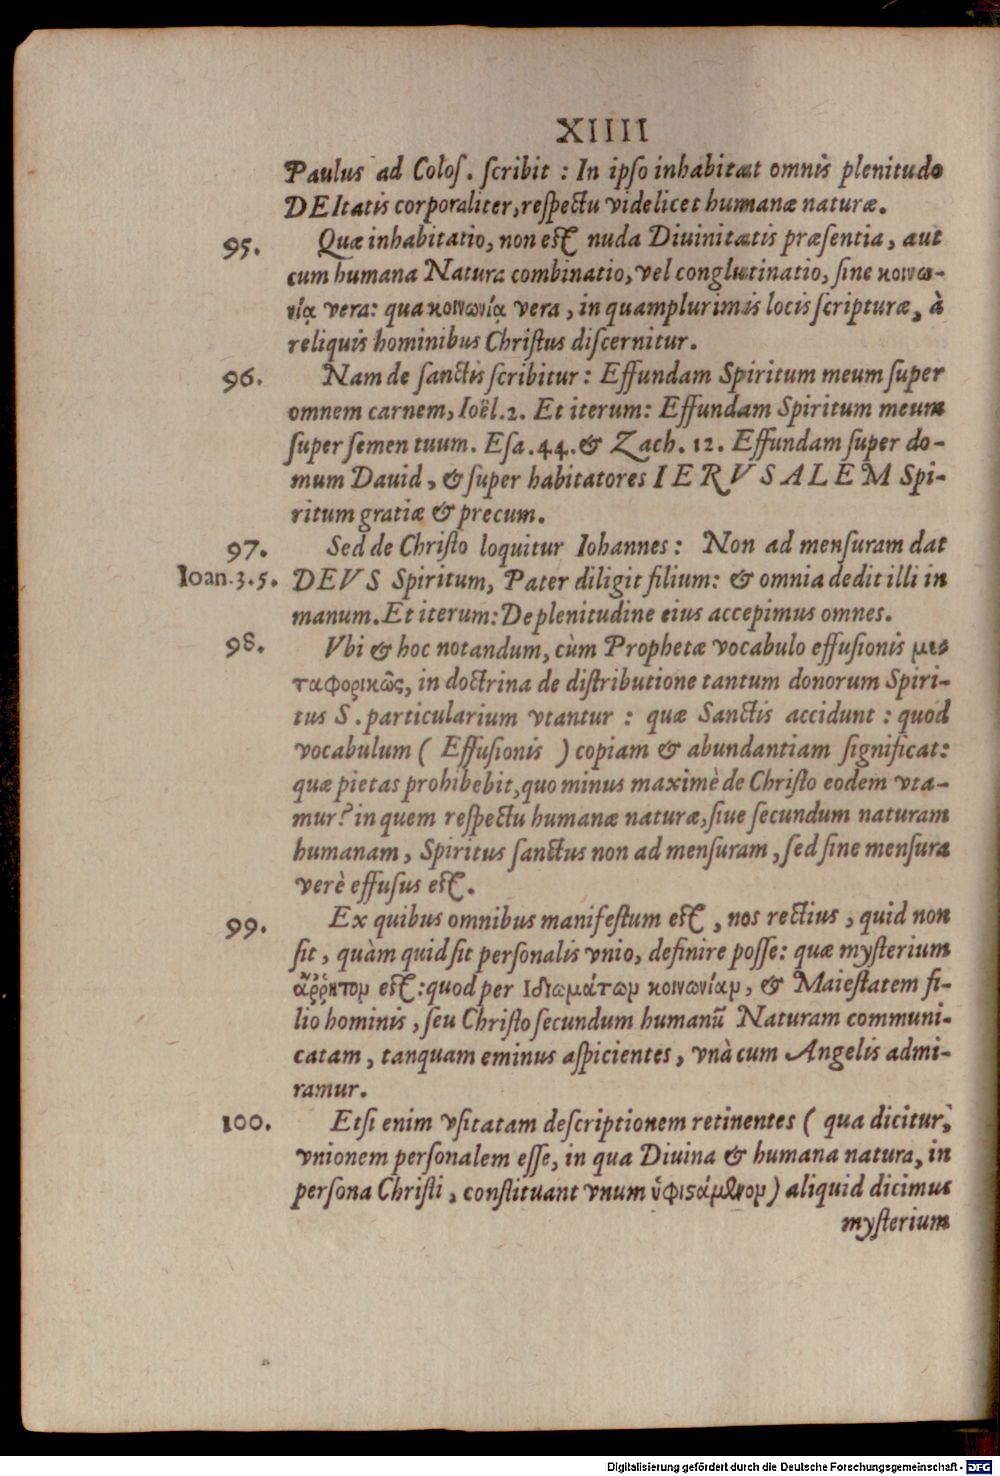 XIIII
Paulus ad Colos. scribit : In ipso inhabitat omnis plenitudo
DEItatis corporaliter, respectu videlicet humanæ naturæ.
95. Quæ inhabitatio, non est nuda Diuinitatis præsentia, aut
cum humana Natura combinatio, vel conglutinatio, sine κοινω-
νίᾳ vera: qua κοινωνίᾳ vera, in quamplurimis locis scripturæ, à
reliquis hominibus Christus discernitur.
96. Nam de sanctis scribitur : Effundam Spiritum meum super
omnem carnem, Ioël.2. Et iterum: Effundam Spiritum meum
super semen tuum. Esa.44. & Zach. 12. Effundam super do-
mum Dauid, & super habitatores IERVSALEM Spi-
ritum gratiæ & precum.
97. Sed de Christo loquitur Iohannes: Non ad mensuram dat
Ioan.3.5. DEVS Spiritum, Pater diligit filium: & omnia dedit illi in
manum. Et iterum: De plenitudine eius accepimus omnes.
98. Vbi & hoc notandum, cùm Prophetæ vocabulo effusionis με-
ταφορικῶς, in doctrina de distributione tantum donorum Spiri-
tus S. particularium vtantur : quæ Sanctis accidunt : quod
vocabulum ( Effusionis ) copiam & abundantiam significat:
quæ pietas prohibebit, quo minus maximè de Christo eodem vta-
mur? in quem respectu humanæ naturæ, siue secundum naturam
humanam, Spiritus sanctus non ad mensuram, sed sine mensura
verè effusus est.
99. Ex quibus omnibus manifestum est, nos rectius, quid non
sit, quàm quid sit personalis vnio, definire posse: quæ mysterium
ἄῤῥητον est: quod per Ιδιωμάτων κοινωνίαν, & Maiestatem fi-
lio hominis, seu Christo secundum humanū Naturam communi-
catam, tanquam eminus aspicientes, vnà cum Angelis admi-
ramur.
100. Etsi enim vsitatam descriptionem retinentes ( qua dicitur,
vnionem personalem esse, in qua Diuina & humana natura, in
persona Christi, constituant vnum ὑφιστάμενον ) aliquid dicimus
mysterium
Digitalisierung gefördert durch die Deutsche Forschungsgemeinschaft - DFG